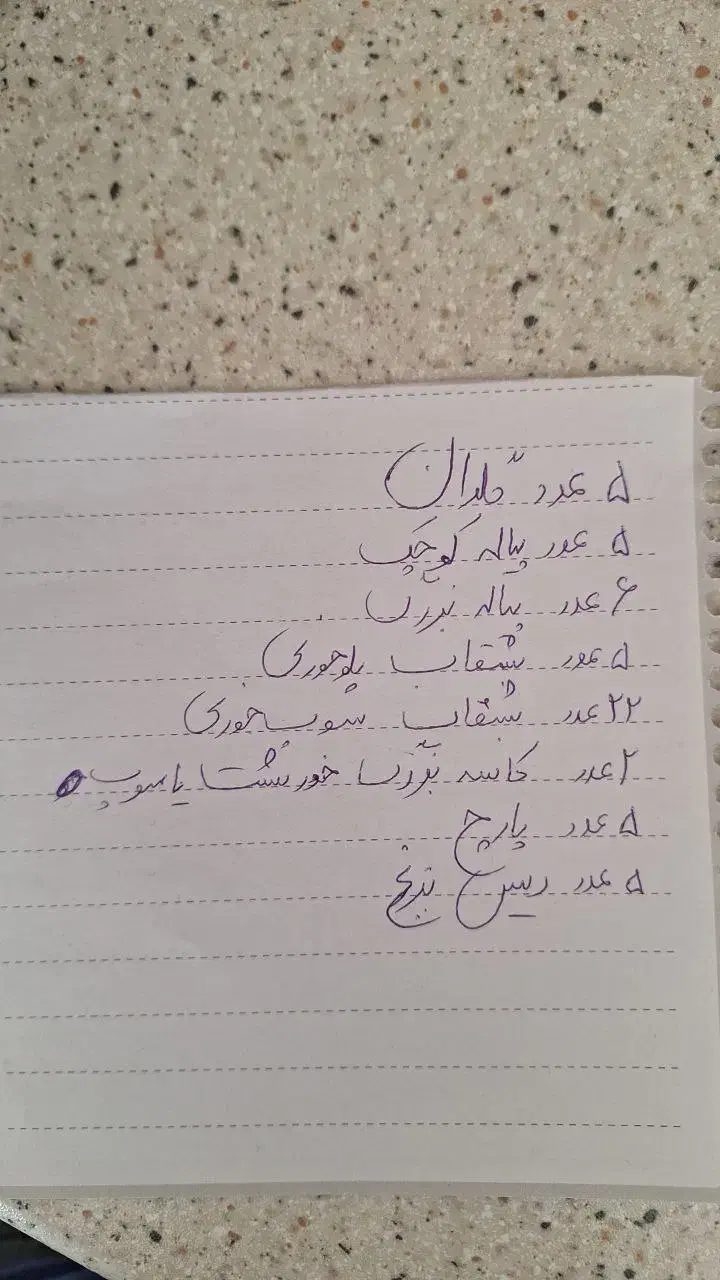 ۵ عدد گلدان
۵ عدد پیاله کوچک
۶ عدد پیاله بزرگ
۵ عدد بشقاب پلوخوری
۲۲ عدد بشقاب سوپ‌خوری
۲ عدد کاسه بزرگ خورشت یا سوپ
۵ عدد پارچ
۵ عدد دیس برنج